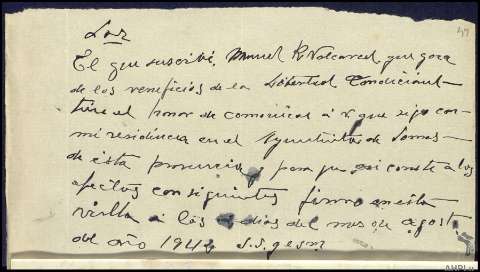 49
El que suscribe, Manuel R. Valcarcel que goza
de los beneficios de la Libertad Condicional
tiene el honor de comunicar a v. que sijo con
mi residencia en el Ayuntamiento de Somos
de esta provincia y para que asi conste a los
efectos consiguientes firmo en esta
villa a los dias del mes de agosto
del año 194 S.S.q.e.s.m.
AHPLu